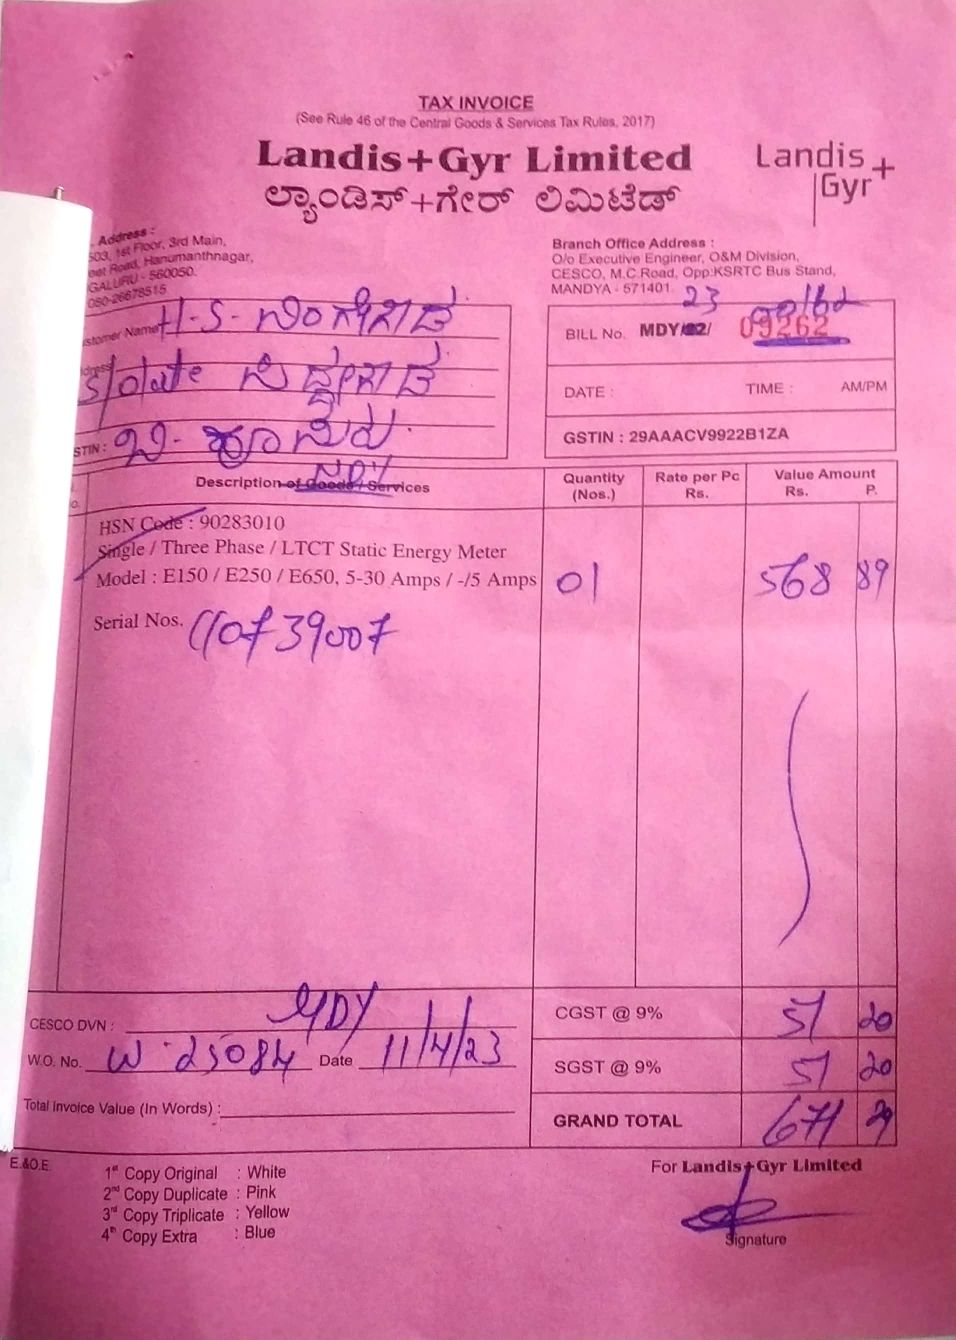 TAX INVOICE
(See Rule 46 of the Central Goods & Services Tax Rules, 2017)
Landis+Gyr Limited
ಲ್ಯಾಂಡಿಸ್+ಗೇರ್ ಲಿಮಿಟೆಡ್
Landis
Gyr+
Address :
503, 1st Floor, 3rd Main,
Road, Hanumanthnagar,
GALURU - 560050.
080-26678515
Branch Office Address :
O/o Executive Engineer, O&M Division,
CESCO, M.C.Road, Opp:KSRTC Bus Stand,
MANDYA - 571401.
stomer Name H-S-
S/o late
STIN :
BILL No. MDY/22/ 09262
23
DATE : TIME : AM/PM
GSTIN : 29AAACV9922B1ZA
Description of Goods / Services
Quantity (Nos.)
Rate per Pc Rs.
Value Amount Rs. P.
HSN Code : 90283010
Single / Three Phase / LTCT Static Energy Meter
Model : E150 / E250 / E650, 5-30 Amps / -/5 Amps 01 568 89
Serial Nos. 110739007
CESCO DVN : MDY
W.O. No. W-25084 Date 11/4/23
Total Invoice Value (In Words) :
CGST @ 9% 51 20
SGST @ 9% 51 20
GRAND TOTAL 671 29
E.&O.E.
1st Copy Original : White
2nd Copy Duplicate : Pink
3rd Copy Triplicate : Yellow
4th Copy Extra : Blue
For Landis+Gyr Limited
Signature